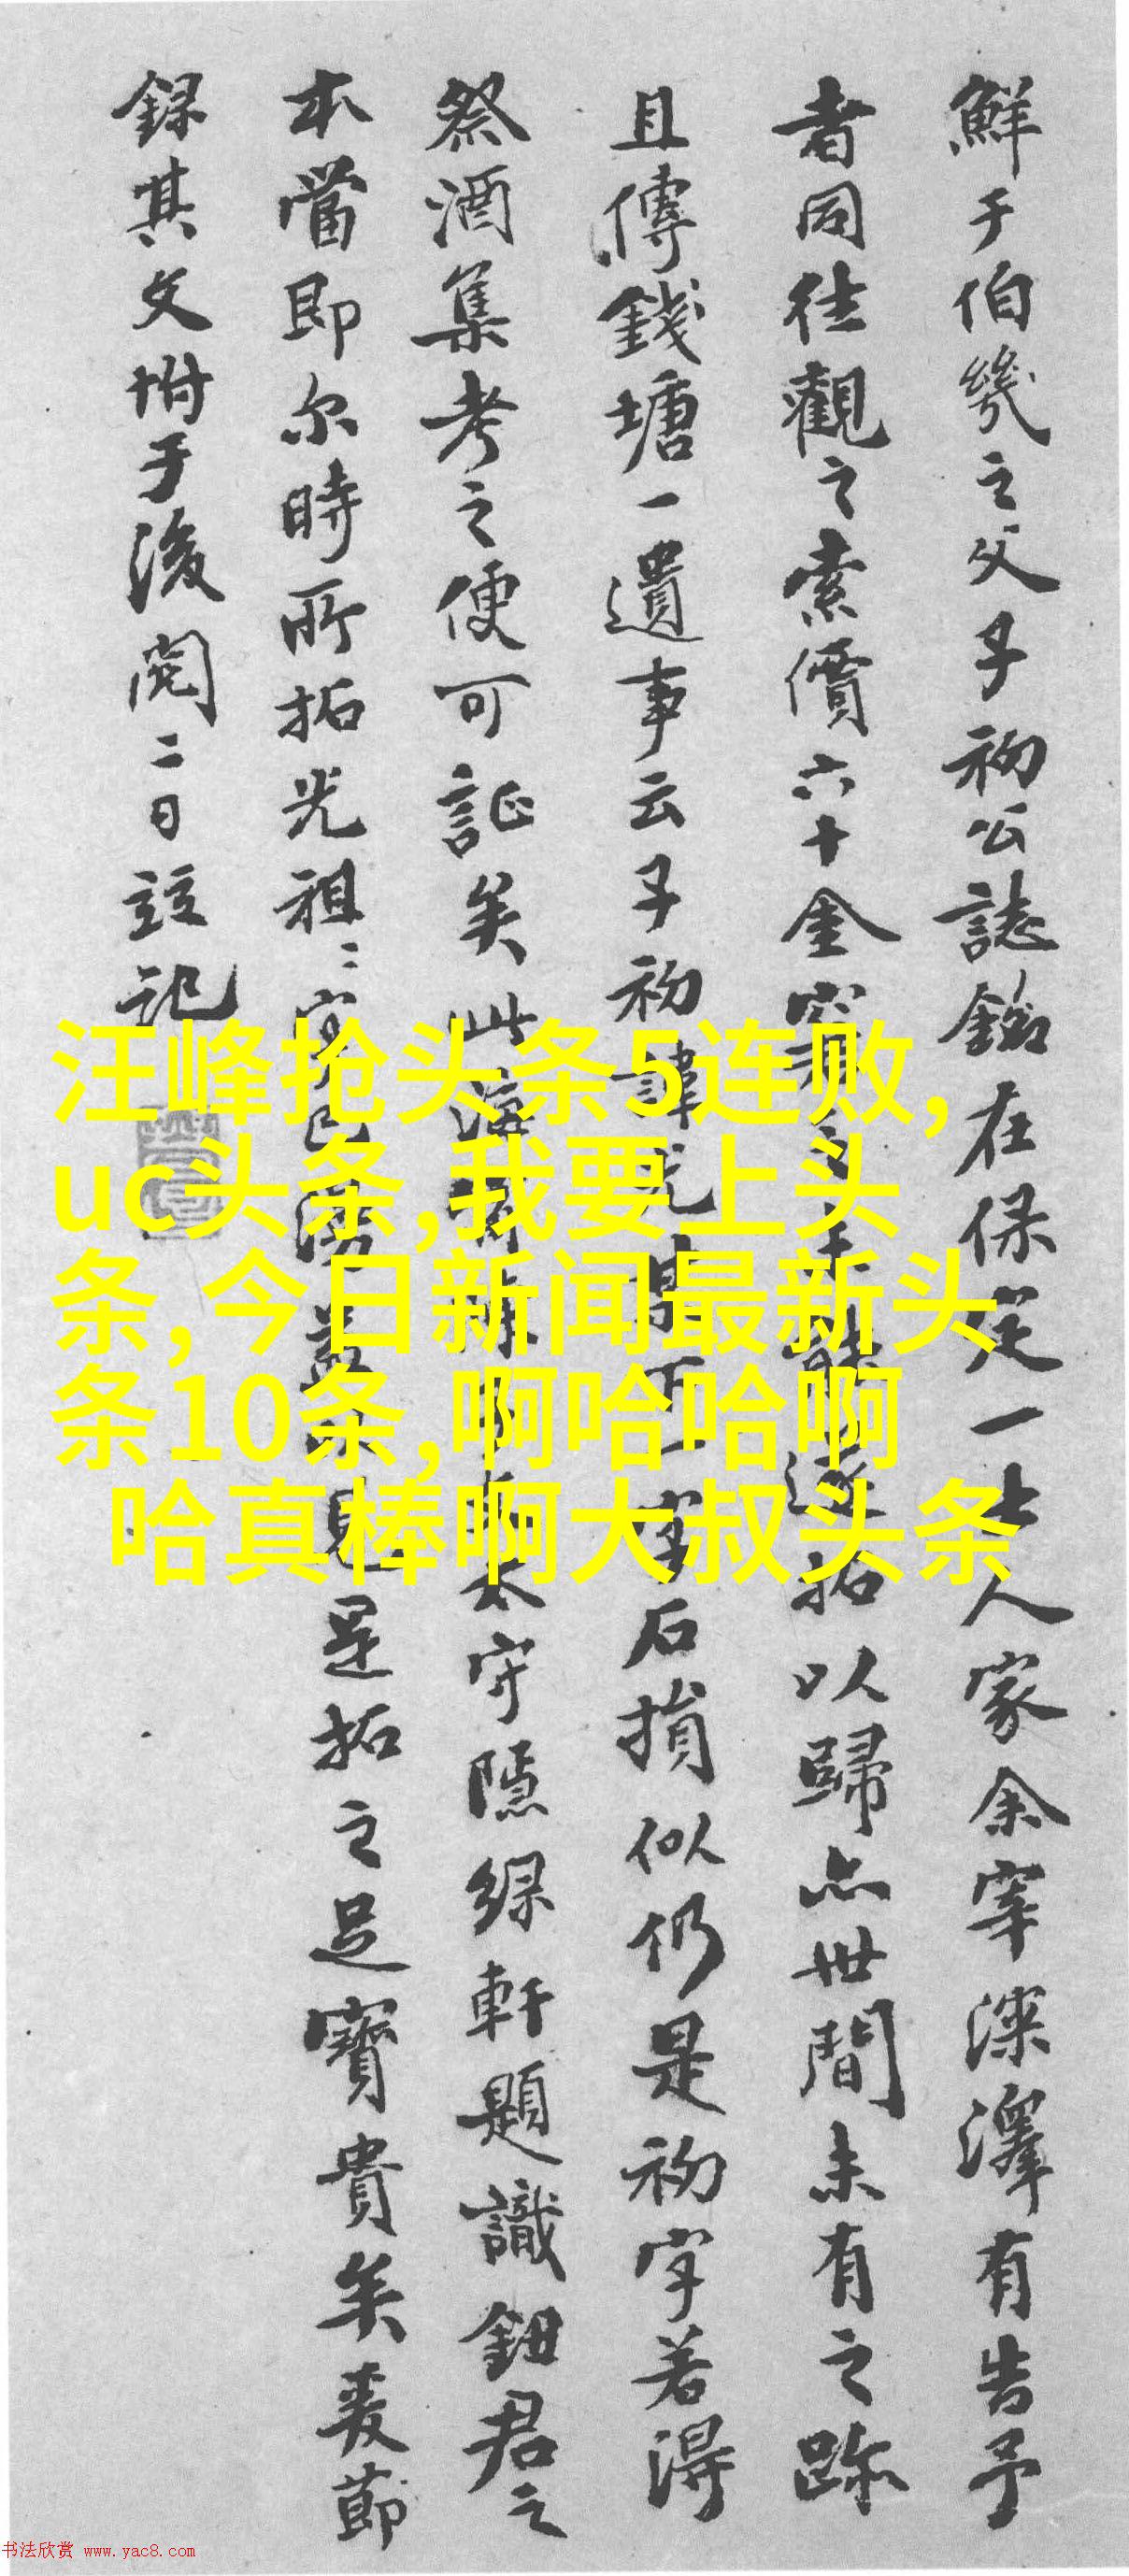 鮮于伯幾之父子初公誌銘在保定一士人家余宰深澤有告予
者同往觀之索價六十金窮
拓以歸亦世間未有之跡
且傳錢塘一遺事云子初諱光
下一字石損似仍是初字若得
祭酒集考之便可証矣此
太守隱綠軒題識鈕君之
本當即尔時所拓光祖=字
見是拓之足寶貴矣爰節
錄其文坿于後閏二日誼記
汪峰抢头条5连败,
uc头条,我要上头
条,今日新闻最新头
条10条,啊哈哈啊
哈真棒啊大叔头条
书法欣赏 www.yac8.com